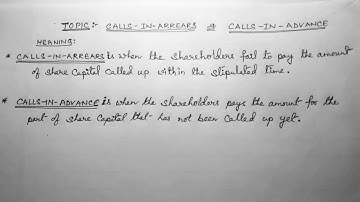 TOPIC:- CALLS-IN-ARREARS & CALLS-IN-ADVANCE
MEANING:
* CALLS-IN-ARREARS is when the shareholders fail to pay the amount
of share capital called up within the stipulated time.
* CALLS-IN-ADVANCE is when the shareholders pays the amount for the
part of share capital that has not been called up yet.